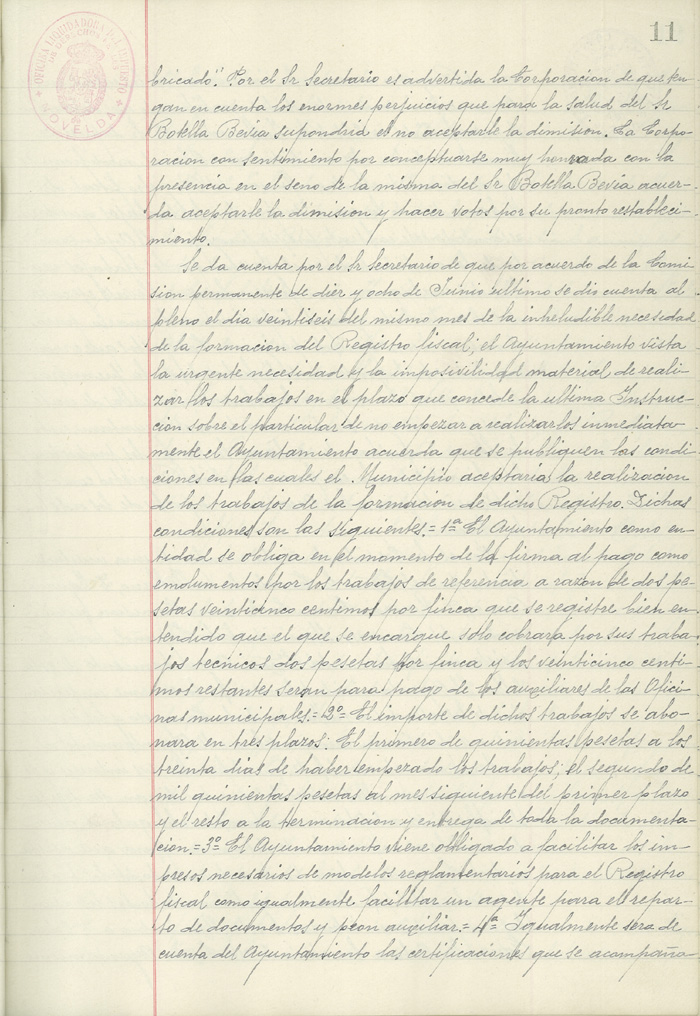 11
OFICINA LIQUIDADORA DEL IMPUESTO
DE DERECHOS
NOVELDA
bricado". Por el Sr Secretario es advertida la Corporacion de que ten-
gan en cuenta los enormes perjuicios que para la salud del Sr
Botella Bevia supondria el no aceptarle la dimision. La Corpo-
racion con sentimiento por conceptuarse muy honrada con la
presencia en el seno de la misma del Sr Botella Bevia acuer-
da aceptarle la dimision y hacer votos por su pronto restableci-
miento.
Se da cuenta por el Sr Secretario de que por acuerdo de la Comi-
sion permanente de diez y ocho de Junio ultimo se dio cuenta al
pleno el dia veintiseis del mismo mes de la inheludible necesidad
de la formacion del Registro fiscal; el Ayuntamiento vista
la urgente necesidad y la imposivilidad material de reali-
zar los trabajos en el plazo que concede la ultima Instruc-
cion sobre el particular de no empezar a realizarlos inmediata-
mente el Ayuntamiento acuerda que se publiquen las condi-
ciones en las cuales el Municipio aceptaria la realizacion
de los trabajos de la formacion de dicho Registro. Dichas
condiciones son las siguientes.= 1ª El Ayuntamiento como en-
tidad se obliga en el momento de la firma al pago como
emolumentos por los trabajos de referencia a razon de dos pe-
setas veinticinco centimos por finca que se registre bien en-
tendido que el que se encargue solo cobrara por sus traba-
jos tecnicos dos pesetas por finca y los veinticinco centi-
mos restantes seran para pago de los auxiliares de las Ofici-
nas municipales.= 2º= El importe de dichos trabajos se abo-
nara en tres plazos: El primero de quinientas pesetas a los
treinta dias de haber empezado los trabajos; el segundo de
mil quinientas pesetas al mes siguiente del primer plazo
y el resto a la terminacion y entrega de toda la documenta-
cion.= 3º El Ayuntamiento viene obligado a facilitar los im-
presos necesarios de modelos reglamentarios para el Registro
fiscal como igualmente facilitar un agente para el repar-
to de documentos y peon auxiliar.= 4ª Igualmente sera de
cuenta del Ayuntamiento las certificaciones que se acompaña-